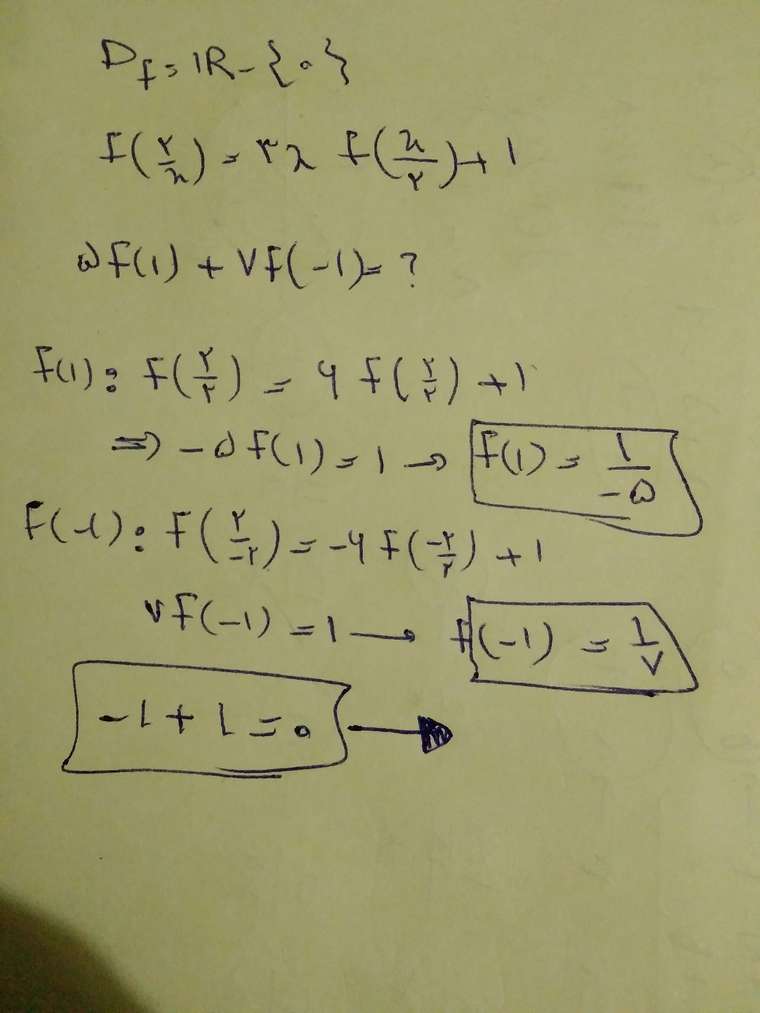 D_f = ℝ - {۰}
f(۲/x) = ۳x f(x/۲) + ۱
۵f(۱) + ۷f(-۱) = ?
f(۱) : f(۲/۲) = ۶ f(۲/۲) + ۱
⇒ -۵ f(۱) = ۱ → f(۱) = ۱/-۵
f(-۱) : f(۲/-۲) = -۶ f(-۲/۲) + ۱
۷f(-۱) = ۱ → f(-۱) = ۱/۷
-۱ + ۱ = ۰ →